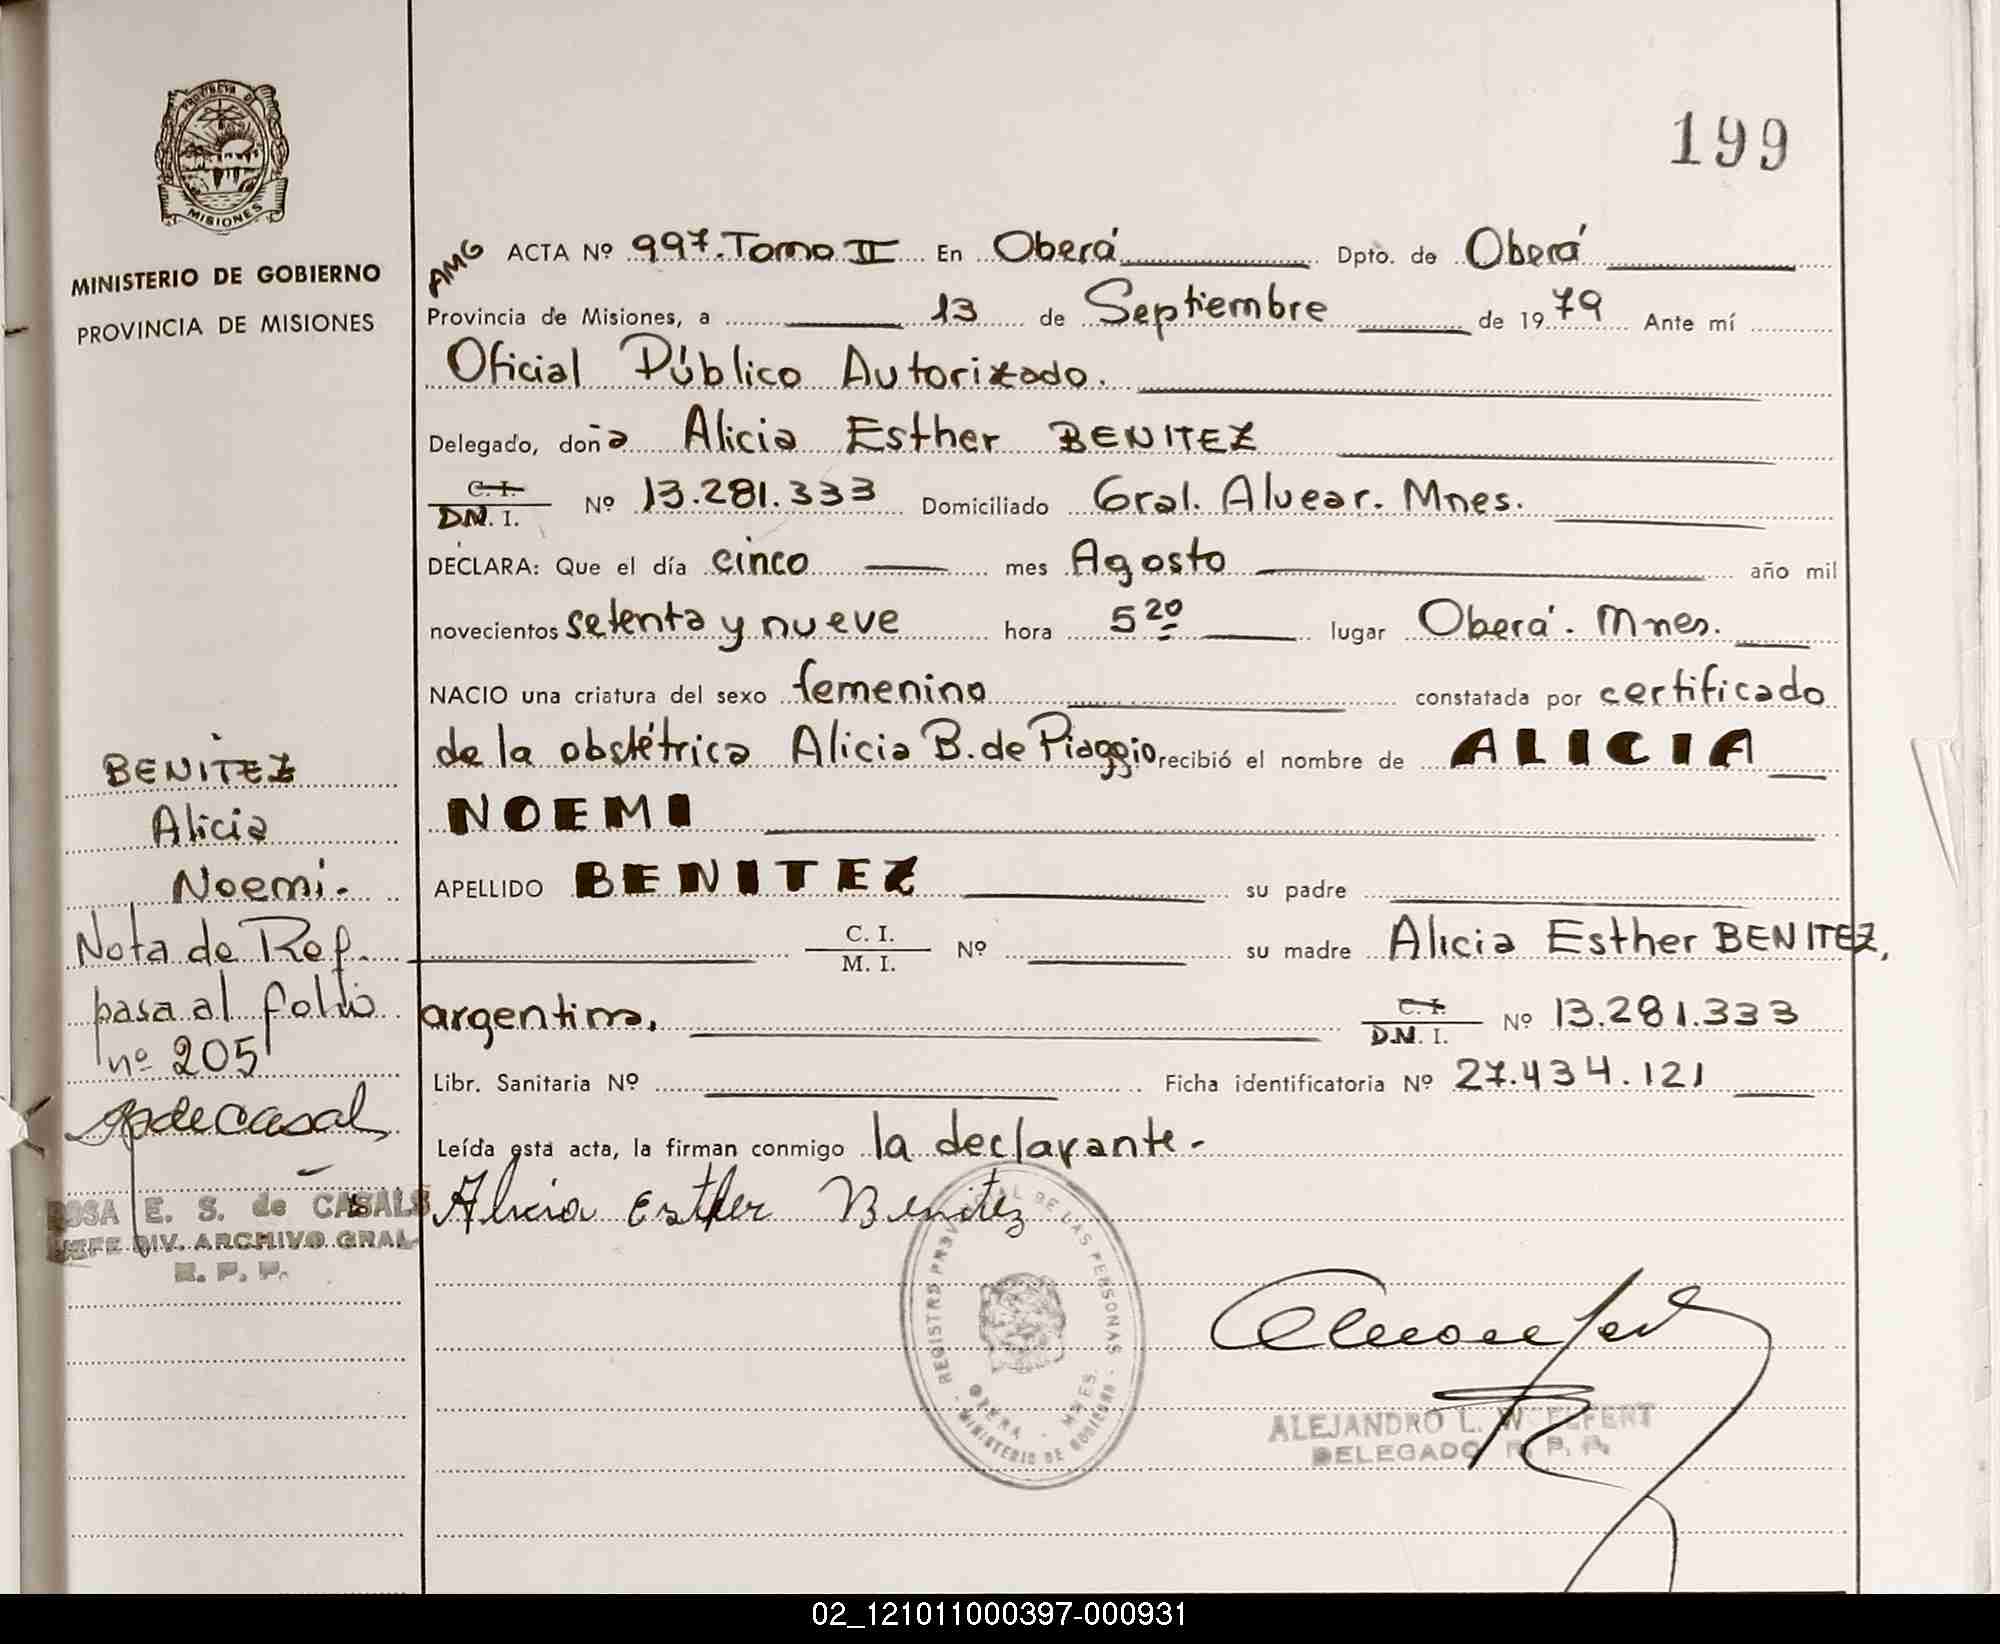 PROVINCIA DE
MISIONES
MINISTERIO DE GOBIERNO
PROVINCIA DE MISIONES
199
AMG ACTA Nº 997. Tomo II En Oberá Dpto. de Oberá
Provincia de Misiones, a 13 de Septiembre de 1979 Ante mí
Oficial Público Autorizado.
Delegado, doña Alicia Esther BENITEZ
C. I.
DN. I. Nº 13.281.333 Domiciliado Gral. Alvear. Mnes.
DECLARA: Que el día cinco mes Agosto año mil
novecientos setenta y nueve hora 5 20 lugar Oberá. Mnes.
NACIO una criatura del sexo femenino constatada por certificado
de la obstétrica Alicia B. de Piaggio recibió el nombre de ALICIA
NOEMI
APELLIDO BENITEZ su padre
C. I.
M. I. Nº su madre Alicia Esther BENITEZ,
argentina.
C. I.
D.N. I. Nº 13.281.333
Libr. Sanitaria Nº Ficha identificatoria Nº 27.434.121
Leída esta acta, la firman conmigo la declarante-
Alicia Esther Benitez
BENITEZ
Alicia
Noemi.
Nota de Ref.
pasa al folio
nº 205
ROSA E. S. de CASALS
JEFE DIV. ARCHIVO GRAL
R. P. P.
REGISTRO PROVINCIAL DE LAS PERSONAS
OBERA - MNES.
MINISTERIO DE GOBIERNO
ALEJANDRO L. WOELFERT
DELEGADO R. P. P.
02_121011000397-000931